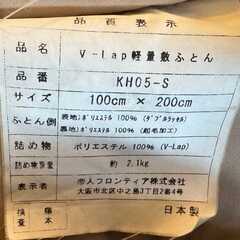 品質表示
品名 V-Lap軽量敷ふとん
品番 KH05-S
サイズ 100cm × 200cm
ふとん側 表地:ポリエステル 100% (ダブルラッセル)
裏地:ポリエステル 100% (起毛加工)
詰め物 ポリエステル 100% (V-Lap)
詰め物重量 約 2.1kg
表示者 帝人フロンティア株式会社
大阪市北区中之島3丁目2番4号
検査 橋本
日本製